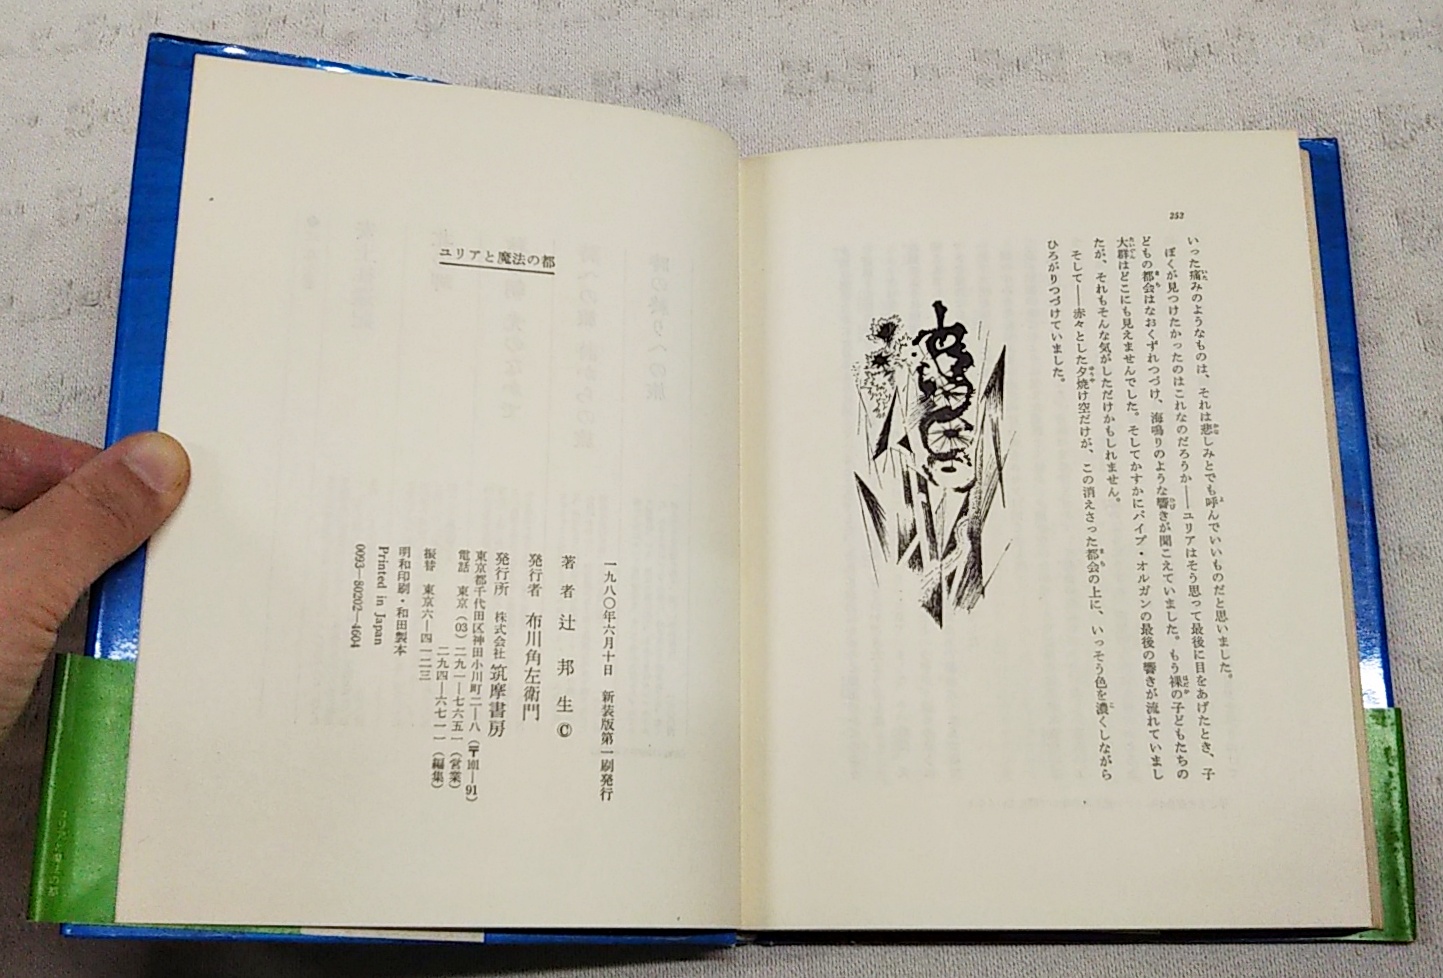 252
いった痛みのようなものは、それは悲しみとでも呼んでいいものだと思いました。
ぼくが見つけたかったのはこれなのだろうか――ユリアはそう思って最後に目をあげたとき、子
どもの都会はなおくずれつづけ、海鳴りのような響きが聞こえていました。もう裸の子どもたちの
大群はどこにも見えませんでした。そしてかすかにパイプ・オルガンの最後の響きが流れていまし
たが、それもそんな気がしただけかもしれません。
そして――赤々とした夕焼け空だけが、この消えさった都会の上に、いっそう色を濃くしながら
ひろがりつづけていました。
ユリアと魔法の都
一九八〇年六月十日 新装版第一刷発行
著者 辻邦生 ©
発行者 布川角左衛門
発行所 株式会社 筑摩書房
東京都千代田区神田小川町二―八（〒101―91）
電話 東京（03）二九一―七六五一（営業）
二九四―六七一一（編集）
振替 東京六―四一二三
明和印刷・和田製本
Printed in Japan
0093―80202―4604